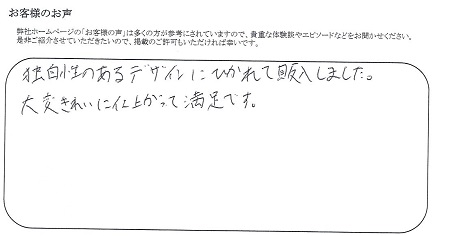 お客様のお声
弊社ホームページの「お客様の声」は多くの方が参考にされていますので、貴重な体験談やエピソードなどをお聞かせください。
是非ご紹介させていただきたいので、掲載のご許可もいただければ幸いです。
独自性のあるデザインにひかれて購入しました。
大変きれいに仕上がって満足です。